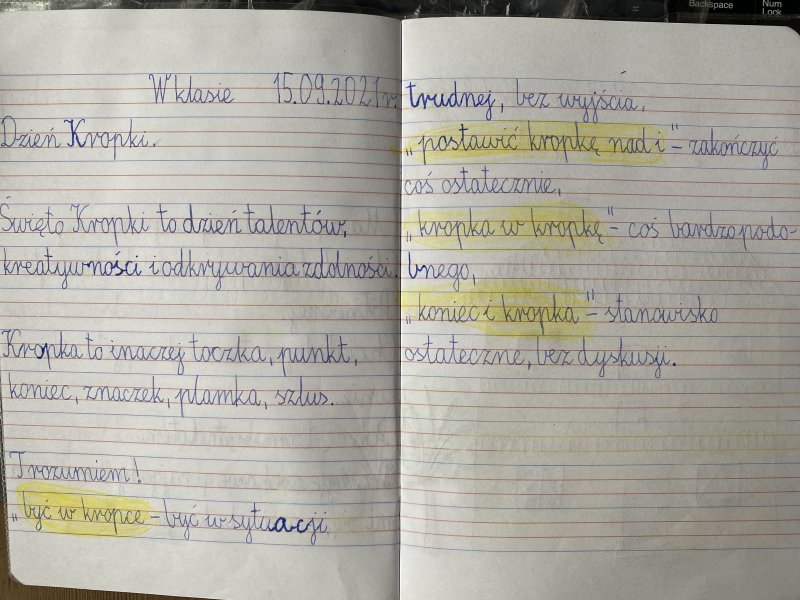 Backspace
Num
Lock
=
W klasie 15.09.2021r.
Dzień Kropki.
Święto Kropki to dzień talentów,
kreatywności i odkrywania zdolności.
Kropka to inaczej toczka, punkt,
koniec, znaczek, plamka, szlus.
I rozumiem!
„być w kropce – być w sytuacji
trudnej, bez wyjścia,
„postawić kropkę nad i" – zakończyć
coś ostatecznie,
„kropka w kropkę" – coś bardzo podo-
bnego,
„koniec i kropka" – stanowisko
ostateczne, bez dyskusji.